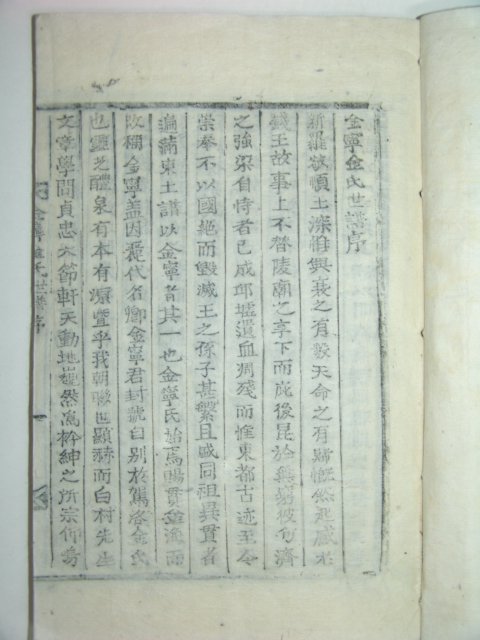 金寧金氏世譜序
新羅敬順王深推興衰之有數天命之有歸慨然起感
錢王故事上不替陵廟之享下而庇後昆於無窮彼句濟
之強梁自恃者已成邱墟遺血凋殘而惟東都古迹至今
崇奉不以國絶而毀滅王之孫子甚繁且盛同祖異貫者
遍滿東土譜以金寧者其一也金寧氏始焉賜貫金海而
改稱金寧盖因麗代名卿金寧君封號自别於駕洛金氏
也靈芝醴泉有本有源豈乎我朝聯世顯赫而白村先生
文章學問貞忠大節軒天動地巍然爲搢紳之所宗仰焉
金寧金氏世譜 序